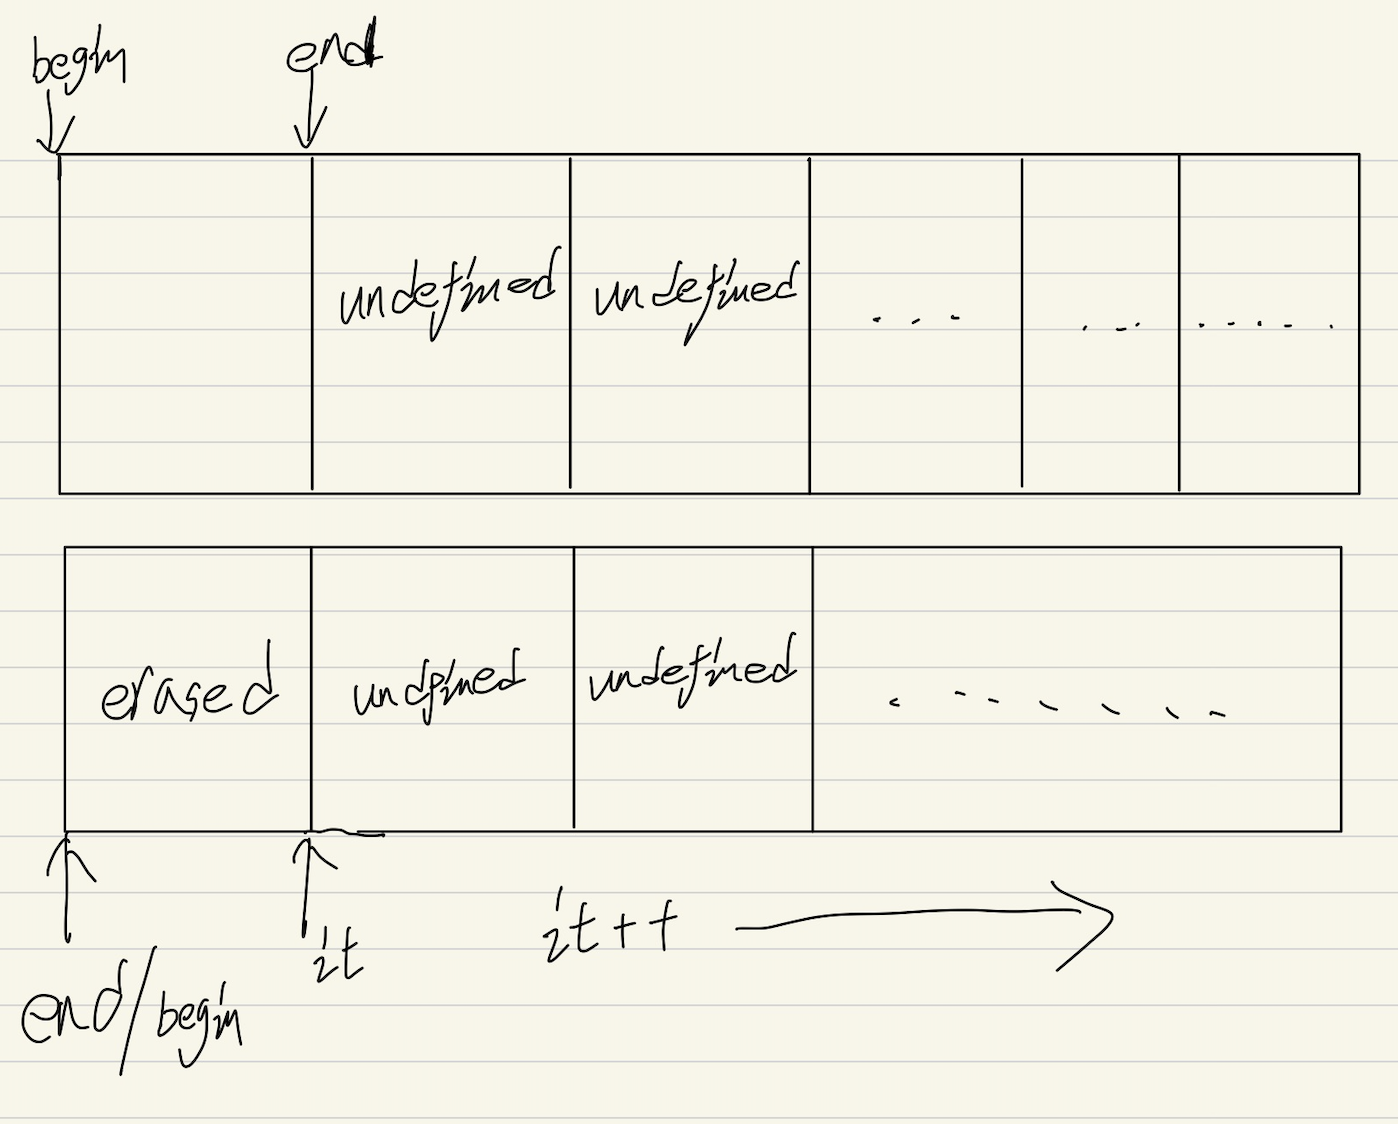 begin end
undefined undefined ... ... .....
erased undfined undefined .......
it it++
end/begin